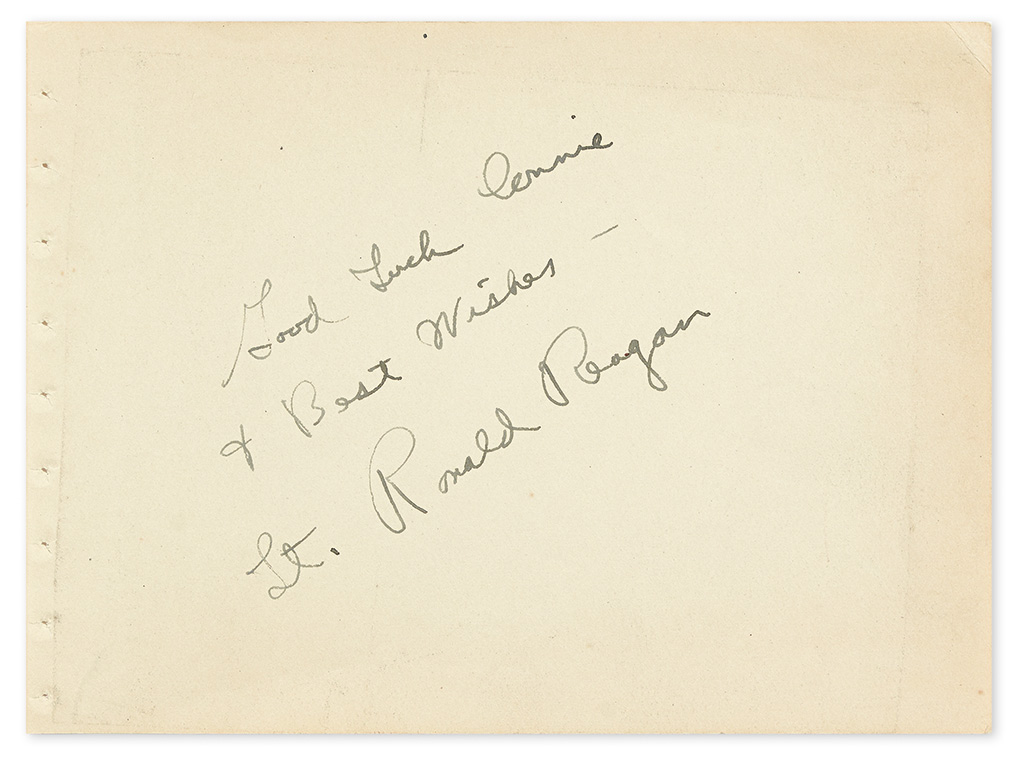 Good Luck Connie
& Best Wishes —
Lt. Ronald Reagan